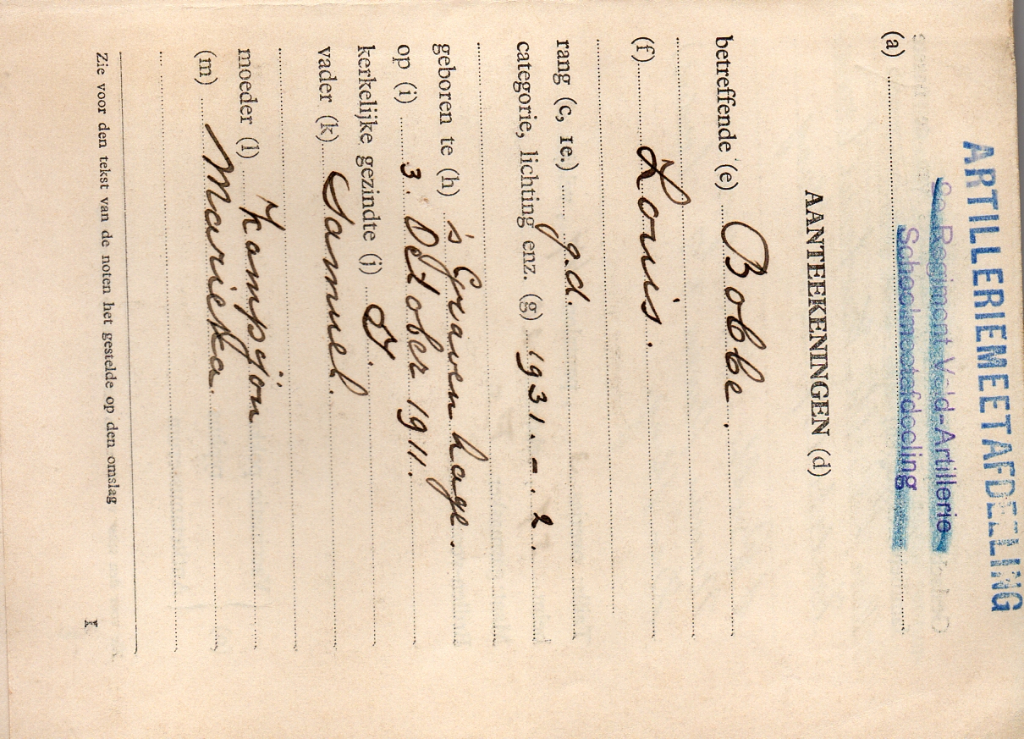 ARTILLERIEMEETAFDEELING
8e Regiment Veld-Artillerie
Schoolmeetafdeeling
(a)
AANTEEKENINGEN (d)
betreffende (e) Bobbe.
(f) Louis.
rang (c, 1e.) g.d.
categorie, lichting enz. (g) 1931.-.2.
geboren te (h) 's Gravenhage.
op (i) 3. October 1911.
kerkelijke gezindte (i)
vader (k) Samuel.
moeder (l) Kompjön
(m) Marieka.
Zie voor den tekst van de noten het gestelde op den omslag
I.